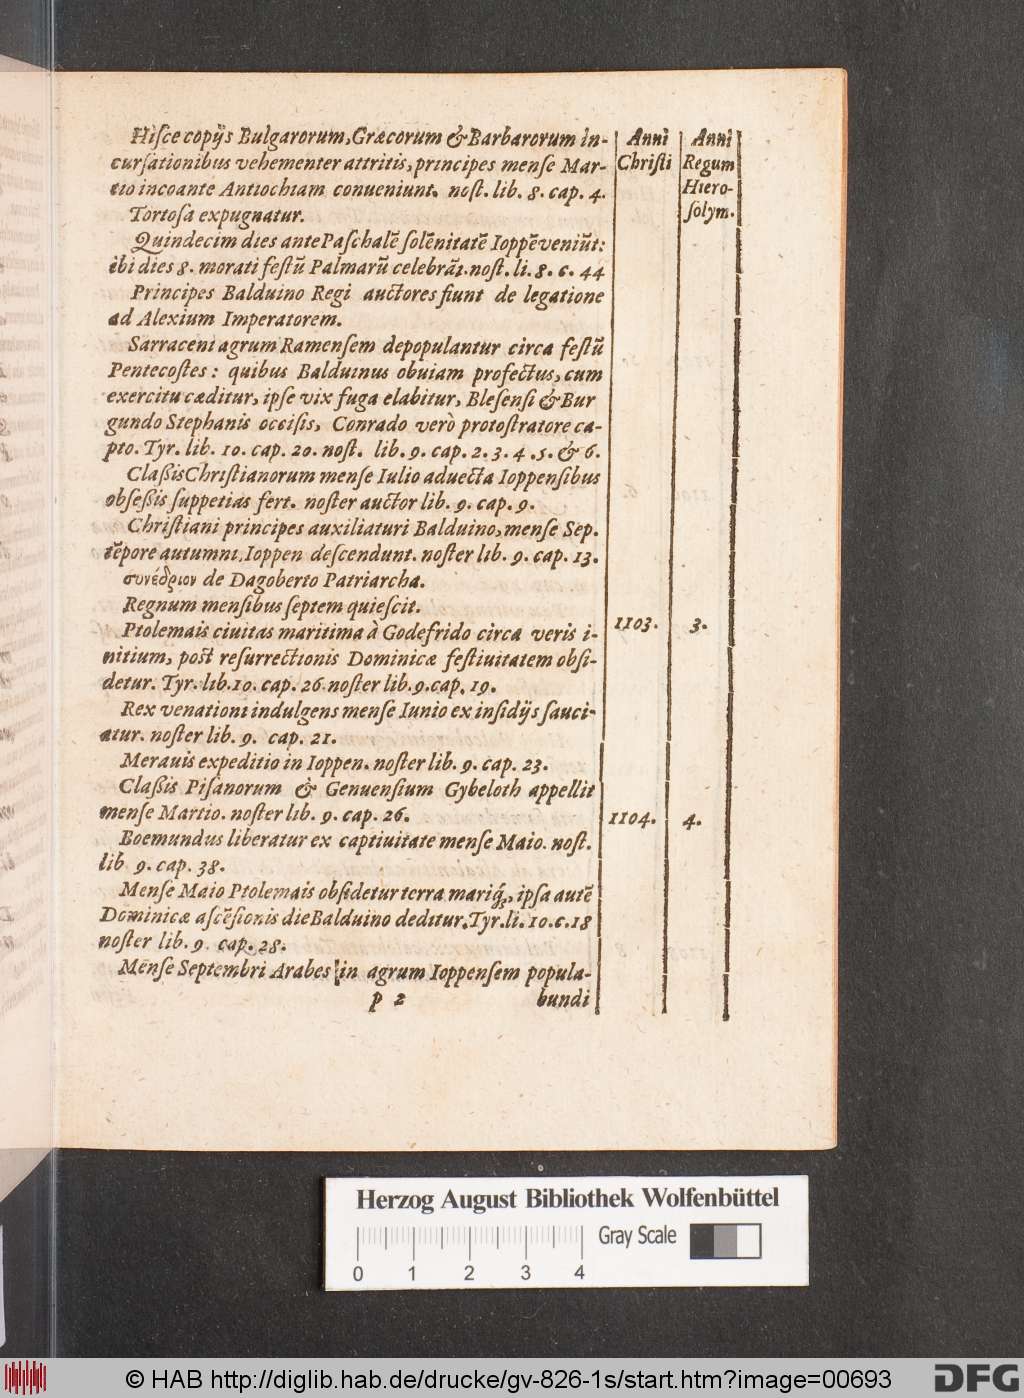 Hiſce copijs Bulgarorum, Græcorum & Barbarorum in-
curſationibus vehementer attritis, principes menſe Mar-
tio incoante Antiochiam conueniunt. noſt. lib. 8. cap. 4.
Tortoſa expugnatur.
Quindecim dies ante Paſchalē ſolēnitatē Ioppē veniūt:
ibi dies 8. morati feſtū Palmarū celebrāt. noſt. li. 8. c. 44
Principes Balduino Regi auctores fiunt de legatione
ad Alexium Imperatorem.
Sarraceni agrum Ramenſem depopulantur circa feſtū
Pentecoſtes: quibus Balduinus obuiam profectus, cum
exercitu cæditur, ipſe vix fuga elabitur, Bleſenſi & Bur
gundo Stephanis occiſis, Conrado verò protoſtratore ca-
pto. Tyr. lib. 10. cap. 20. noſt. lib. 9. cap. 2. 3. 4. 5. & 6.
Claßis Chriſtianorum menſe Iulio aduecta Ioppenſibus
obſeßis ſuppetias fert. noſter auctor lib. 9. cap. 9.
Chriſtiani principes auxiliaturi Balduino, menſe Sep.
tēpore autumni Ioppen deſcendunt. noſter lib. 9. cap. 13.
συνέδριον de Dagoberto Patriarcha.
Regnum menſibus ſeptem quieſcit.
Ptolemais ciuitas maritima à Godefrido circa veris i-
nitium, poſt reſurrectionis Dominicæ feſtiuitatem obſi-
detur. Tyr. lib. 10. cap. 26. noſter lib. 9. cap. 19.
Rex venationi indulgens menſe Iunio ex inſidijs ſauci-
atur. noſter lib. 9. cap. 21.
Merauis expeditio in Ioppen. noſter lib. 9. cap. 23.
Claßis Piſanorum & Genuenſium Gybeloth appellit
menſe Martio. noſter lib. 9. cap. 26.
Boemundus liberatur ex captiuitate menſe Maio. noſt.
lib 9. cap. 38.
Menſe Maio Ptolemais obſidetur terra mariq́;, ipſa autē
Dominicæ aſcēſionis die Balduino deditur. Tyr. li. 10. c. 18
noſter lib. 9. cap. 28.
Menſe Septembri Arabes in agrum Ioppenſem popula-
p 2 bundi
Anni
Chriſti
Anni
Regum
Hiero-
ſolym.
1103. 3.
1104. 4.
Herzog August Bibliothek Wolfenbüttel
Gray Scale
0 1 2 3 4
© HAB http://diglib.hab.de/drucke/gv-826-1s/start.htm?image=00693
DFG